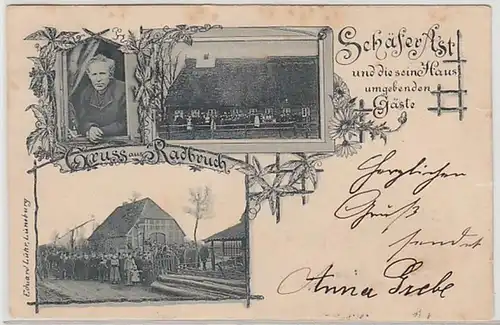 Schäfer Ast
und die sein Haus
umgebenden
Gäste
Gruss aus Radbruch
Herzlichen
Gruß
sendet
Anna
Eduard Lühr, Lüneburg